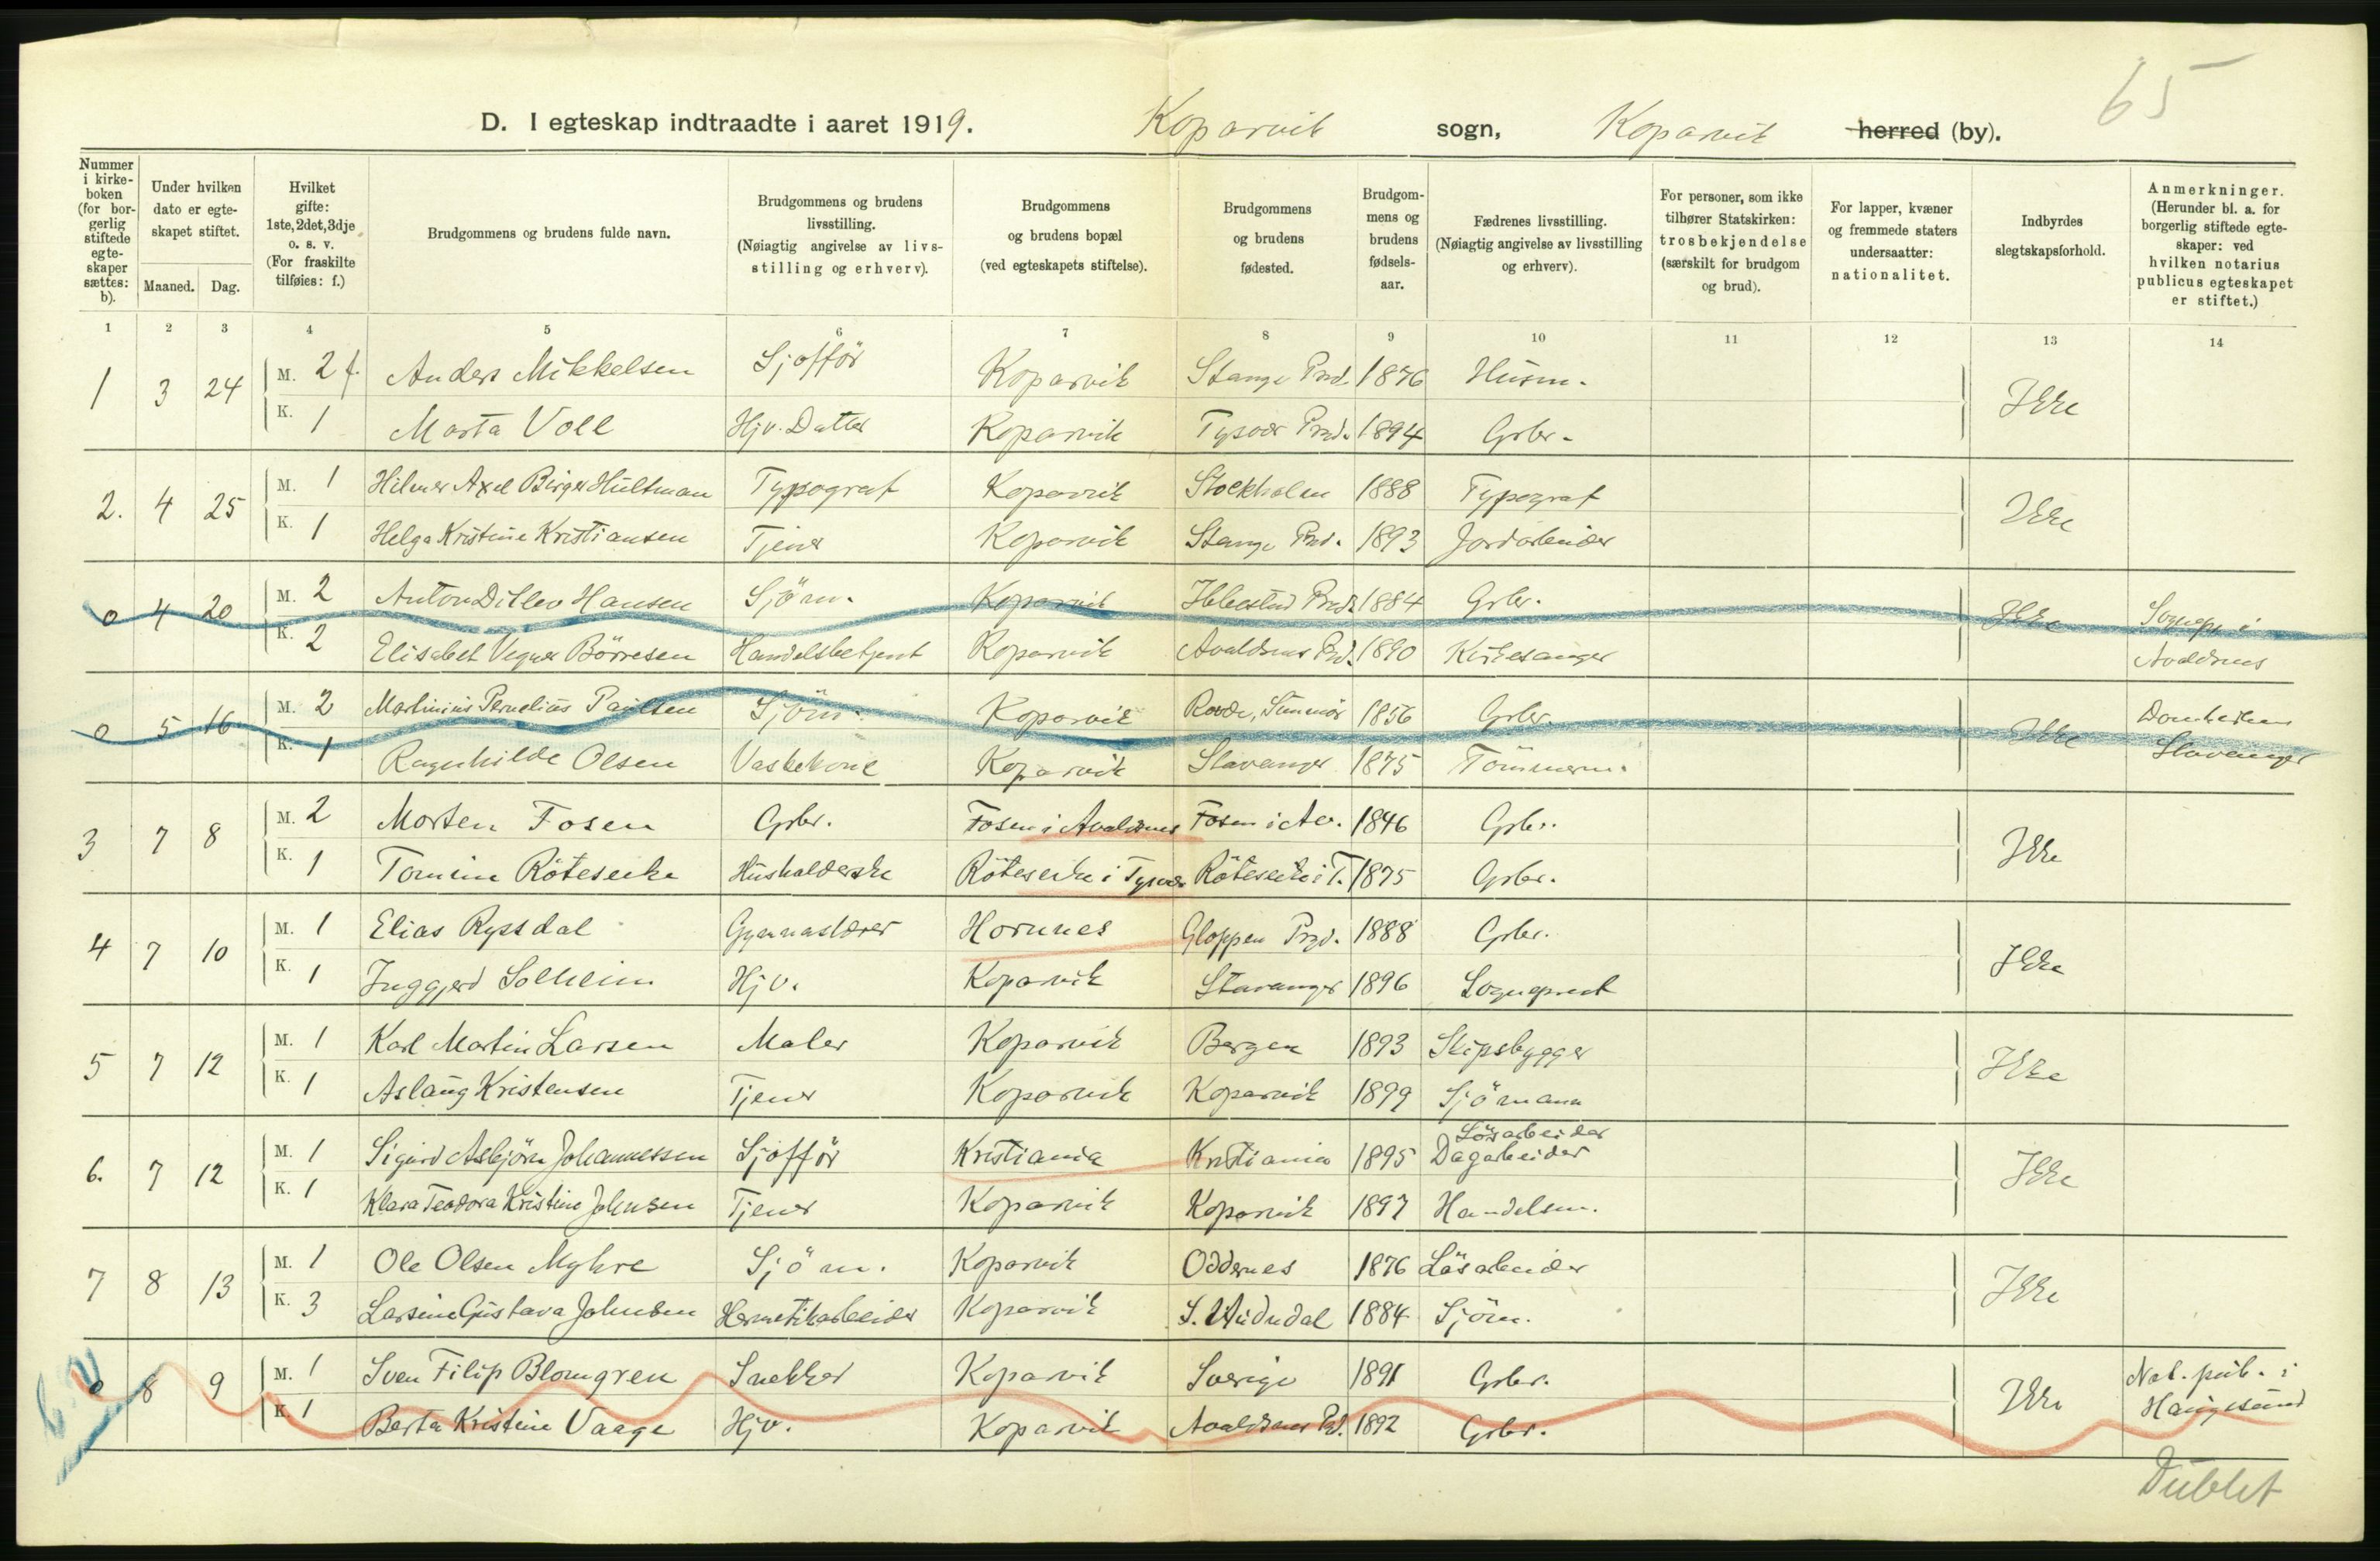 65
D. I egteskap indtraadte i aaret 1919. Kopervik sogn, Kopervik herred (by).
Nummer i kirkeboken (for borgerlig stiftede egteskaper sættes: b). | Under hvilken dato er egteskapet stiftet. Maaned. Dag. | Hvilket gifte: 1ste, 2det, 3dje o. s. v. (For fraskilte tilføies: f.) | Brudgommens og brudens fulde navn. | Brudgommens og brudens livsstilling. (Nøiagtig angivelse av livsstilling og erhverv). | Brudgommens og brudens bopæl (ved egteskapets stiftelse). | Brudgommens og brudens fødested. | Brudgommens og brudens fødselsaar. | Fædrenes livsstilling. (Nøiagtig angivelse av livsstilling og erhverv). | For personer, som ikke tilhører Statskirken: trosbekjendelse (særskilt for brudgom og brud). | For lapper, kvæner og fremmede staters undersaatter: nationalitet. | Indbyrdes slegtskapsforhold. | Anmerkninger. (Herunder bl. a. for borgerlig stiftede egteskaper: ved hvilken notarius publicus egteskapet er stiftet.)
1 2 3 4 5 6 7 8 9 10 11 12 13 14
1 3 24 M. 2 f. Anders Mikkelsen Sjofför Kopervik Stange Prd. 1876 Husm. Ikke
K. 1 Marta Voll Hjv. Datter Kopervik Tysvær Prd. 1894 Grbr.
2. 4 25 M. 1 Hilmer Axel Birger Hultman Typograf Kopervik Stockholm 1888 Typograf Ikke
K. 1 Helga Kristine Kristiansen Tjener Kopervik Stange Prd. 1893 Jordarbeider
0 4 20 M. 2 Anton Ditlev Hansen Sjöm. Kopervik Ibbestad Prd. 1884 Grbr. Ikke Sognepr. i
K. 2 Elisabet Vegner Börresen Handelsbetjent Kopervik Avaldsnes Prd. 1890 Kirkesanger Avaldsnes
0 5 16 M. 2 Martinius Pernelius Paulsen Sjöm. Kopervik Rovde, Sunmör 1856 Grbr. Ikke Domkirken
K. 1 Ragnhilde Olsen Vaskekone Kopervik Stavanger 1875 Tömmerm. Stavanger
3 7 8 M. 2 Morten Fosen Grbr. Fosen i Avaldsnes Fosen i Av. 1846 Grbr. Ikke
K. 1 Tomine Röteseike Husholderske Röteseike i Tysvær Röteseike i T. 1875 Grbr.
4 7 10 M. 1 Elias Ryssdal Gymnaslærer Hornnes Gloppen Prgd. 1888 Grbr. Ikke
K. 1 Inggjerd Solheim Hjv. Kopervik Stavanger 1896 Sogneprest
5 7 12 M. 1 Karl Martin Larsen Maler Kopervik Bergen 1893 Skipsbygger Ikke
K. 1 Aslaug Kristensen Tjener Kopervik Kopervik 1899 Sjömann
Lösarbeider
6. 7 12 M. 1 Sigurd Asbjörn Johannessen Sjofför Kristiania Kristiania 1895 Dagarbeider Ikke
K. 1 Klara Teodora Kristine Johnsen Tjener Kopervik Kopervik 1897 Handelsm.
7 8 13 M. 1 Ole Olsen Myhre Sjöm. Kopervik Oddernes 1876 Lösarbeider Ikke
K. 3 Larsine Gustava Johnsen Hermetikarbeider Kopervik S. Undal 1884 Sjöm.
0 8 9 M. 1 Sven Filip Blomgren Snekker Kopervik Sverige 1891 Grbr. Ikke Not. pub. i
K. 1 Berta Kristine Vaage Hjv. Kopervik Avaldsnes Prd. 1892 Grbr. Haugesund
Dublet